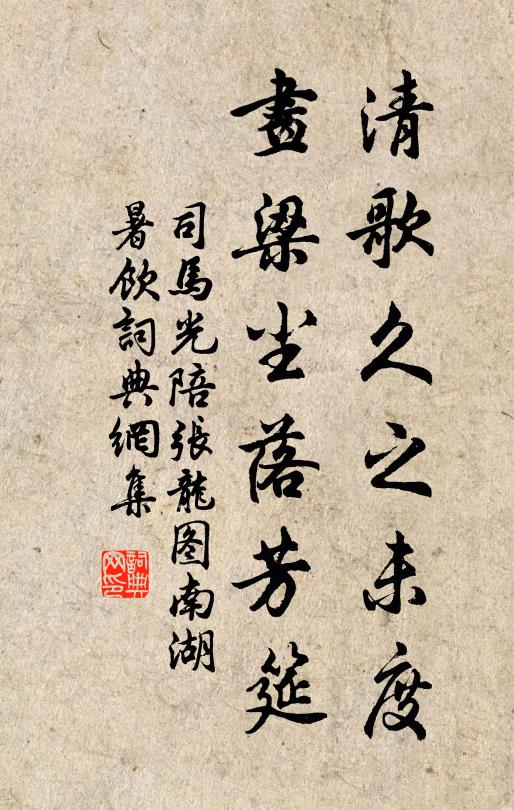 清歌久之未度
畫梁尘落芳筵
司馬光陪張龍图南湖
暑飲詞典網集
詞典网印